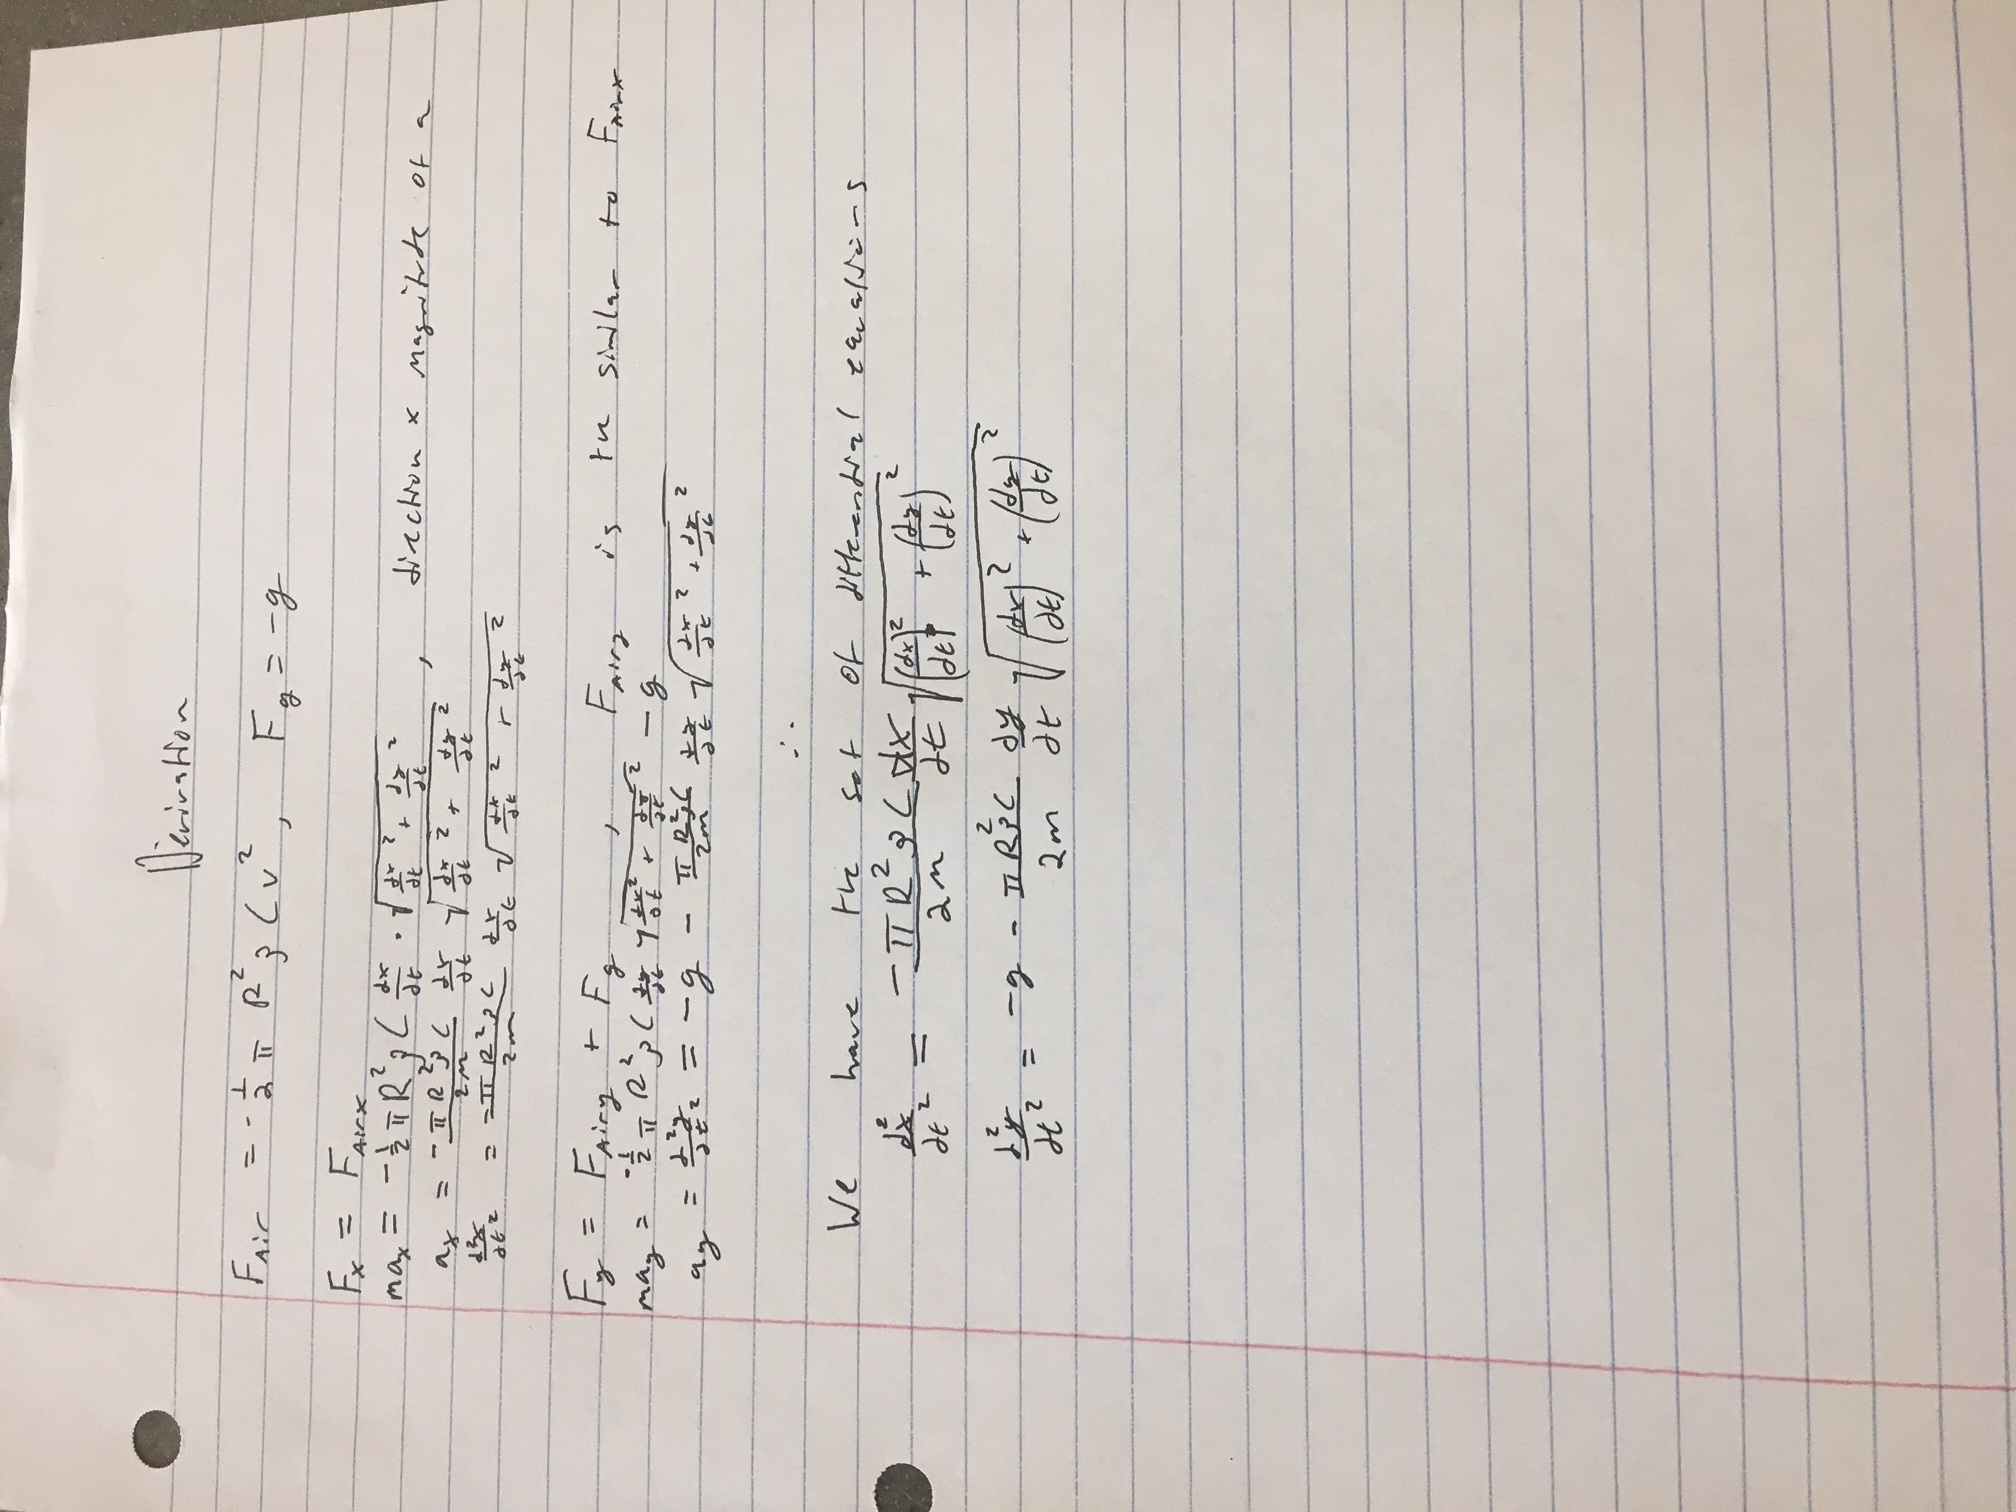 Derivation
F_Air = -1/2 π R² ρ C v², F_g = -g
F_x = F_Air x
ma_x = -1/2 π R² ρ C dx/dt · √(dx/dt ² + dy/dt ²), direction x magnitude of a
a_x = -π R² ρ C / 2m dx/dt √(dx/dt ² + dy/dt ²)
d²x/dt² = -π R² ρ C / 2m dx/dt √(dx/dt ² + dy/dt ²)
F_y = F_Air y + F_g, F_Air y is the similar to F_Air x
ma_y = -1/2 π R² ρ C dy/dt √(dx/dt ² + dy/dt ²) - g
a_y = d²y/dt² = -g - π R² ρ C / 2m dy/dt √(dx/dt ² + dy/dt ²)
∴
We have the set of differential equations
d²x/dt² = -π R² ρ C / 2m dx/dt √((dx/dt)² + (dy/dt)²)
d²y/dt² = -g - π R² ρ C / 2m dy/dt √((dx/dt)² + (dy/dt)²)